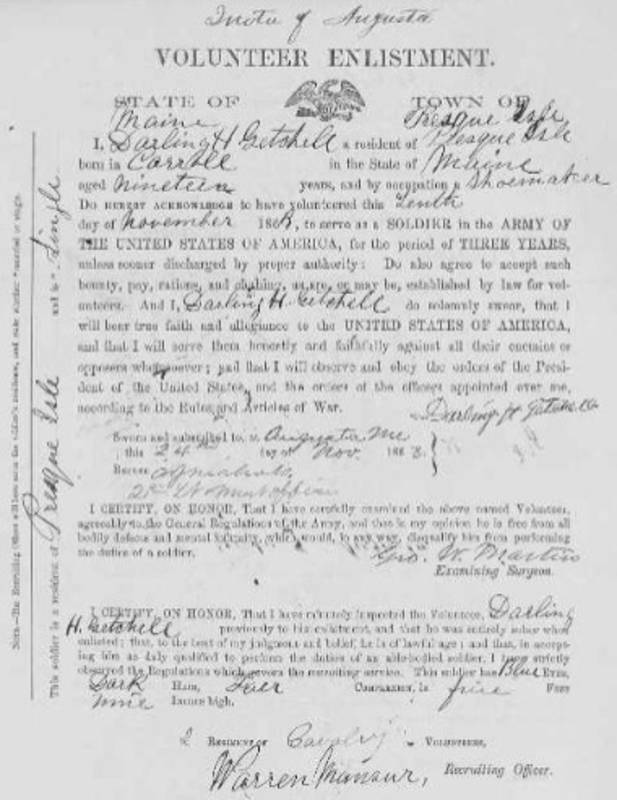 of Augusta
VOLUNTEER ENLISTMENT.
STATE OF TOWN OF
Maine Presque Isle
I, Darling H Getchell a resident of Presque Isle
born in Carroll in the State of Maine
aged Nineteen years, and by occupation a Shoemaker
DO HEREBY ACKNOWLEDGE to have volunteered this Tenth
day of November 1863, to serve as a SOLDIER in the ARMY OF
THE UNITED STATES OF AMERICA, for the period of THREE YEARS,
unless sooner discharged by proper authority: Do also agree to accept such
bounty, pay, rations, and clothing, as are, or may be, established by law for vol-
unteers. And I, Darling H. Getchell do solemnly swear, that I
will bear true faith and allegiance to the UNITED STATES OF AMERICA,
and that I will serve them honestly and faithfully against all their enemies or
opposers whomsoever; and that I will observe and obey the orders of the Presi-
dent of the United States, and the orders of the officers appointed over me,
according to the Rules and Articles of War.
Darling H Getchell
Sworn and subscribed to, at Augusta Me
this 24th day of Nov. 1863.
BEFORE
I CERTIFY, ON HONOR, That I have carefully examined the above named Volunteer,
agreeably to the General Regulations of the Army, and that in my opinion he is free from all
bodily defects and mental infirmity, which would, in any way, disqualify him from performing
the duties of a soldier.
Geo. W. Martin
Examining Surgeon.
I CERTIFY, ON HONOR, That I have minutely inspected the Volunteer, Darling
H. Getchell previously to his enlistment, and that he was entirely sober when
enlisted; that, to the best of my judgment and belief, he is of lawful age; and that, in accept-
ing him as duly qualified to perform the duties of an able-bodied soldier, I have strictly
observed the Regulations which govern the recruiting service. This soldier has Blue EYES,
Dark HAIR, COMPLEXION, is five FEET
nine INCHES high.
2 REGIMENT OF Cavalry VOLUNTEERS,
Warren Mansur, Recruiting Officer.
This soldier is a resident of Presque Isle and is Single
NOTE.—The Recruiting Officer will here enter the soldier's residence, and state whether married or single.